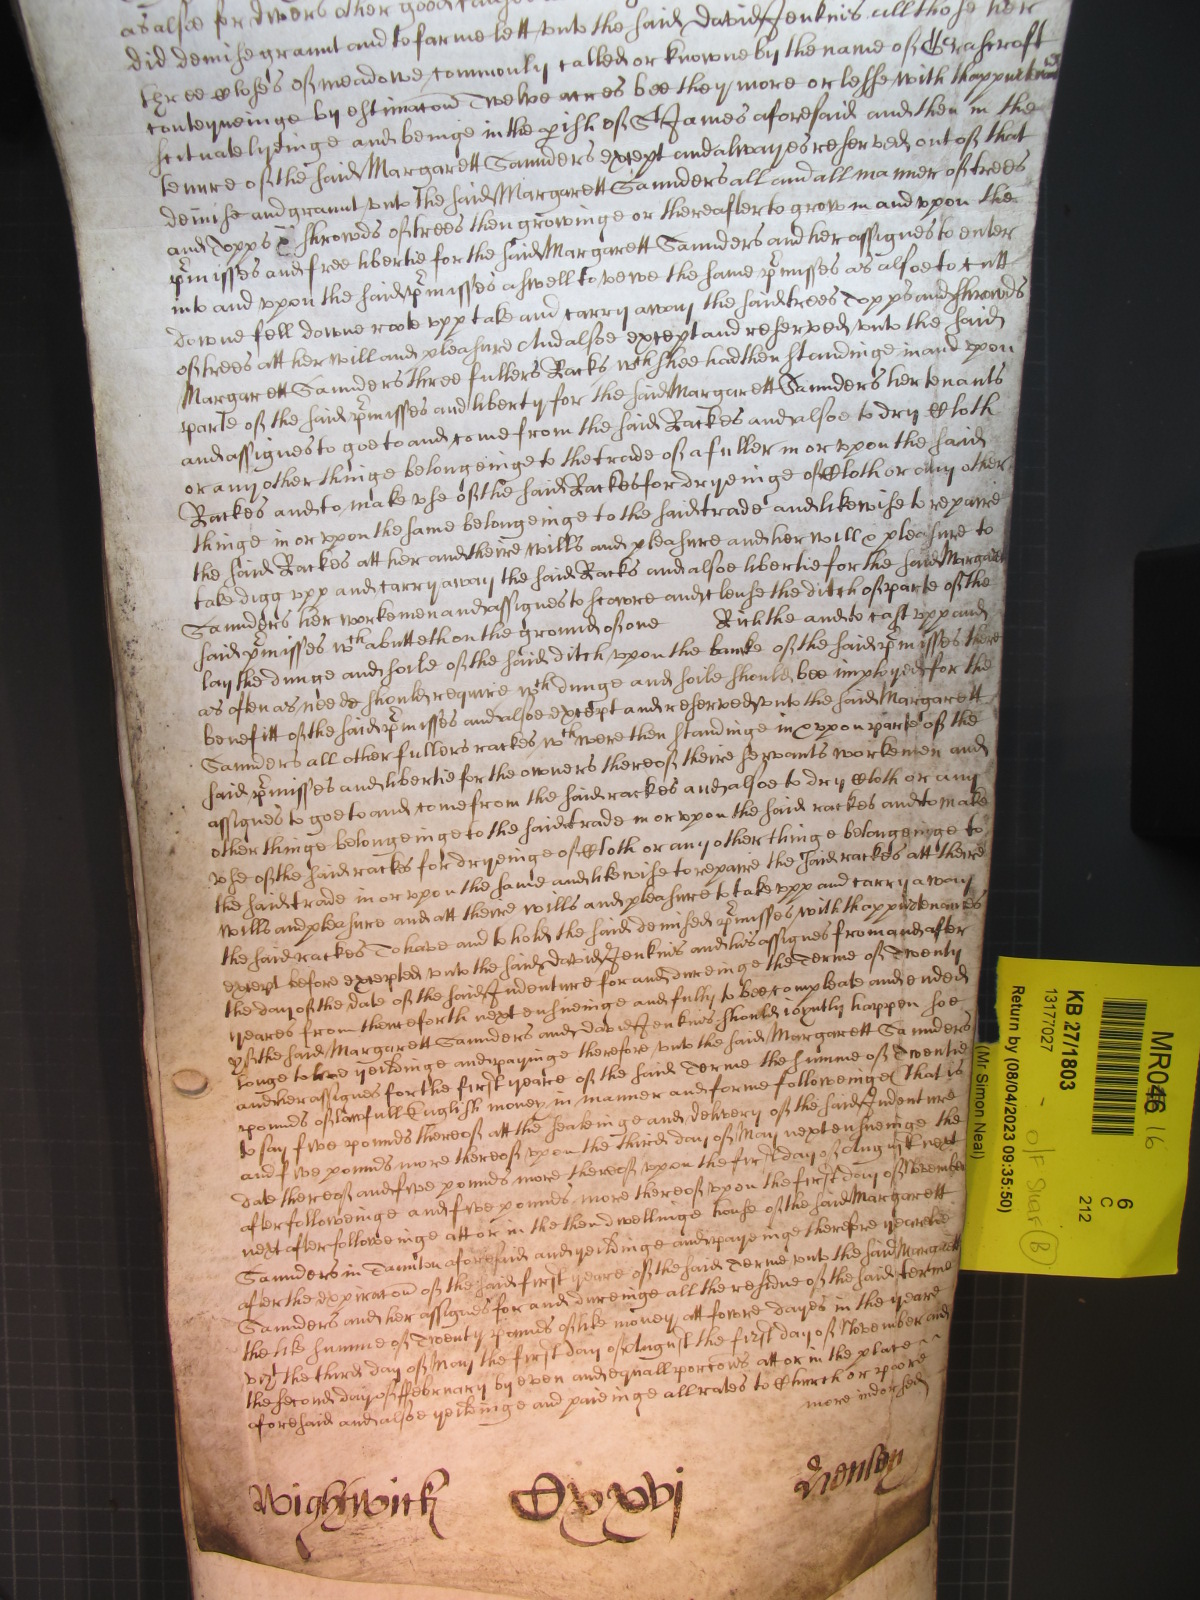 as alsoe for divers other good
did demise graunt and to farme lett unto the said David Jenkins all those her
three closes of meadowe commonly called or knowne by the name of
conteyneinge by estimacon Twelve acres bee they more or lesse with thappurten
scituate lyeinge and beinge in the pish of St James aforesaid and then in the
tenure of the said Margarett Saunders except and alwayes reserved out of that
demise and graunt unto the said Margarett Saunders all and all manner of trees
and Topps & shrowds of trees then growinge or thereafter to grow in and vpon the
pmisses and free libertie for the said Margarett Saunders and her assignes to enter
into and vpon the said pmisses aswell to vewe the same pmisses as alsoe to cutt
downe fell downe roote vpp take and carry away the said trees Topps and shrowds
of trees att her will and pleasure And alsoe except and reserved unto the said
Margarett Saunders three fullers Racks wch shee had then standinge in and vpon
parte of the said pmisses and liberty for the said Margarett Saunders her tenants
and assignes to goe to and come from the said Rackes and alsoe to dry Cloth
or any other thinge belongeinge to the trade of a fuller in or vpon the said
Rackes and to make vse of the said Rackes for dryeinge of Cloth or any other
thinge in or vpon the same belongeinge to the said trade and likewise to repaire
the said Rackes att her and theire wills and pleasure and her will & pleasure to
take digg vpp and carry away the said Racks and alsoe libertie for the said Margarett
Saunders her workemen and assignes to scowre and clense the ditch of parte of the
said pmisses wch abutteth on the ground of one Rich the and to cast vpp and
lay the dunge and soile of the said ditch vpon the banke of the said pmisses there
as often as neede should require wch dunge and soile should bee imployed for the
benefitt of the said pmisses and alsoe except and reserved unto the said Margarett
Saunders all other fullers rackes wch were then standinge in & vpon parte of the
said pmisses and libertie for the owners thereof theire servants workemen and
assignes to goe to and come from the said rackes and alsoe to dry Cloth or any
other thinge belongeinge to the said trade in or vpon the said rackes and to make
vse of the said rackes for dryeinge of Cloth or any other thinge belongeinge to
the said trade in or vpon the same and likewise to repaire the said rackes att theire
wills and pleasure and att theire wills and pleasure to take vpp and carry away
the said rackes To have and to hold the said demised pmisses with thappurtenances
except before excepted unto the said David Jenkins and his assignes from and after
the day of the date of the said Indenture for and dureinge the Terme of Twenty
yeares from thenceforth next ensueinge and fully to bee compleate and ended
yf the said Margarett Saunders and David Jenkins should ioyntly happen soe
longe to live yeildinge and payinge therefore unto the said Margarett Saunders
and her assignes for the first yeare of the said Terme the summe of Twentie
pounds of lawfull English money in manner and forme followeinge That is
to say five pounds thereof att the sealeinge and delivery of the said Indenture
and five pounds more thereof vpon the third day of May next ensueinge the
date thereof and five pounds more thereof vpon the first day of August next
after followeinge and five pounds more thereof vpon the first day of November
next after followeinge att or in the then dwellinge house of the said Margarett
Saunders in Taunton aforesaid and yeildinge and payeinge therefore yearelie
after the expiracon of the said first yeare of the said Terme unto the said Margarett
Saunders and her assignes for and dureinge all the residue of the said terme
the like summe of Twenty pounds of like money att fowre dayes in the yeare
vizt the third day of May the first day of August the first day of November and
the second day of ffebruary by even and equall porcons att or in the place
aforesaid and alsoe yeildinge and paieinge all rates to Church or poore
more indorsed
Wightwick Cxxvj Henley
MR046 16
KB 27/1803
13177027
Return by (08/04/2023 09:35:50)
(Mr Simon Neal)
6
C
212
B